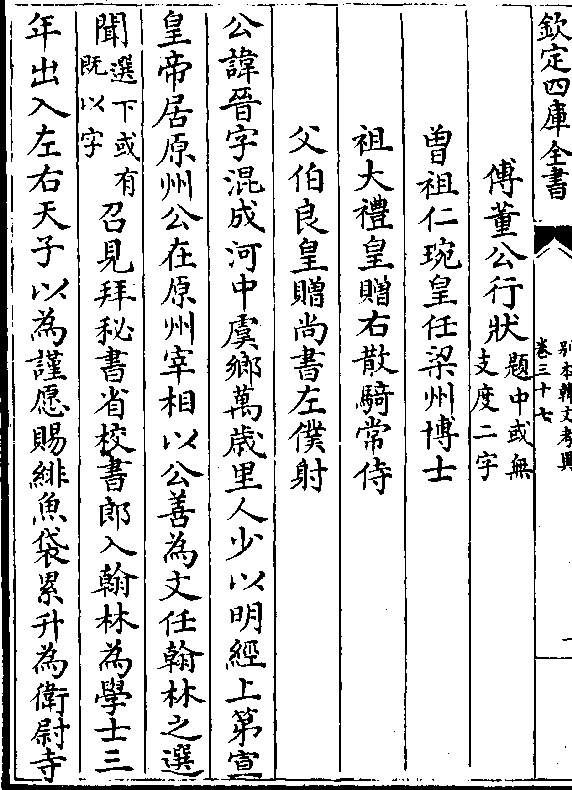 欽定四庫全書
別本韓文考異
卷三十七
一
傅董公行狀題中或無支度二字
曾祖仁琬皇任梁州博士
祖大禮皇贈右散騎常侍
父伯良皇贈尚書左僕射
公諱晉字混成河中虞鄉萬歲里人少以明經上第宣
皇帝居原州公在原州宰相以公善為文任翰林之選
聞選下或有既以字召見拜秘書省校書郎入翰林為學士三
年出入左右天子以為謹愿賜緋魚袋累升為衛尉寺